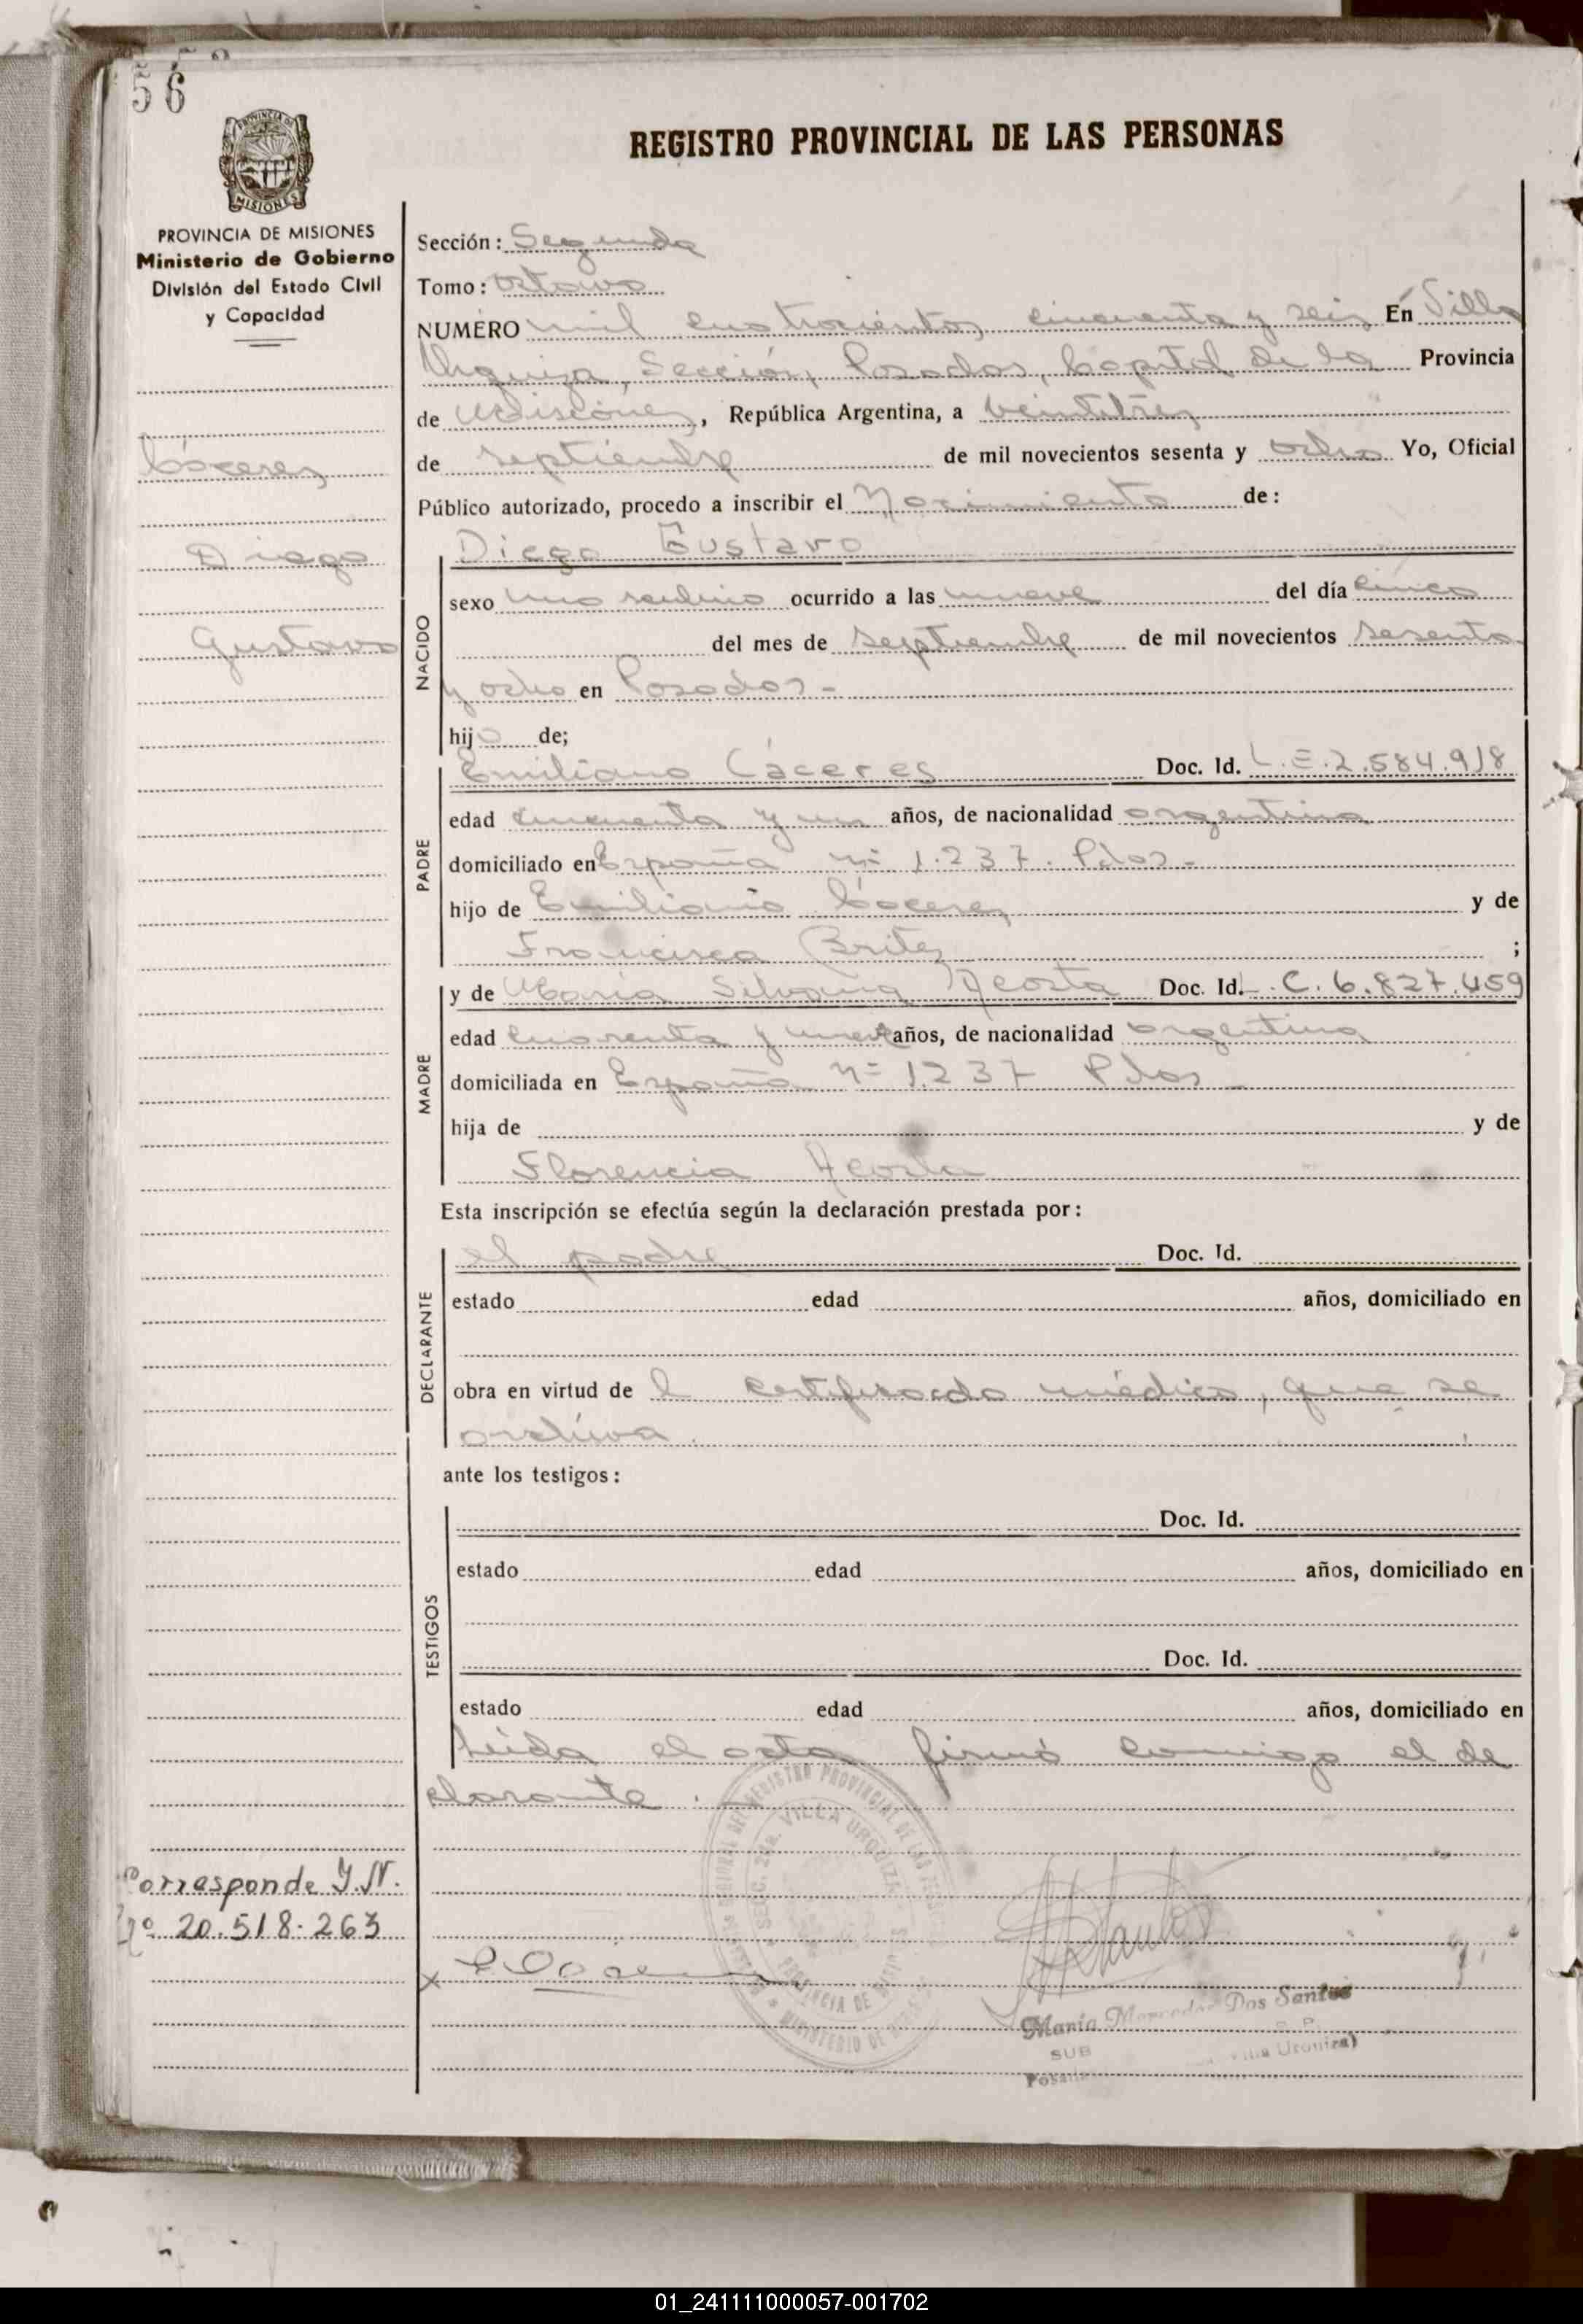 56
REGISTRO PROVINCIAL DE LAS PERSONAS
PROVINCIA DE MISIONES
Ministerio de Gobierno
División del Estado Civil
y Capacidad
Cáceres
Diego
Gustavo
Sección: Segunda
Tomo: octavo
NUMERO mil cuatrocientos cincuenta y seis En Villa
Urquiza, Sección, Posadas, Capital de la Provincia
de Misiones, República Argentina, a veintitres
de septiembre de mil novecientos sesenta y ocho Yo, Oficial
Público autorizado, procedo a inscribir el Nacimiento de:
NACIDO
Diego Gustavo
sexo masculino ocurrido a las nueve del día cinco
del mes de septiembre de mil novecientos sesenta
y ocho en Posadas-
hijo de;
PADRE
Emiliano Cáceres Doc. Id. L.E.2.584.918
edad cincuenta y un años, de nacionalidad argentina
domiciliado en España nº 1.237. Pdas-
hijo de Emiliano Cáceres y de
Francisca Britez ;
MADRE
y de María Silvana Acosta Doc. Id. L.C.6.827.459
edad cuarenta y nueve años, de nacionalidad argentina
domiciliada en España Nº 1237 Pdas-
hija de y de
Florencia Acosta
Esta inscripción se efectúa según la declaración prestada por:
DECLARANTE
el padre Doc. Id.
estado edad años, domiciliado en
obra en virtud de l certificado médico, que se
archiva.
ante los testigos:
TESTIGOS
Doc. Id.
estado edad años, domiciliado en
Doc. Id.
estado edad años, domiciliado en
Leída el acta firmó conmigo el de
clarante.
Corresponde I.N.
Nº 20.518.263
VILLA URQUIZA
PROVINCIA DE
María Mercedes Dos Santos
SUB
Villa Urquiza)
Posadas
01_241111000057-001702